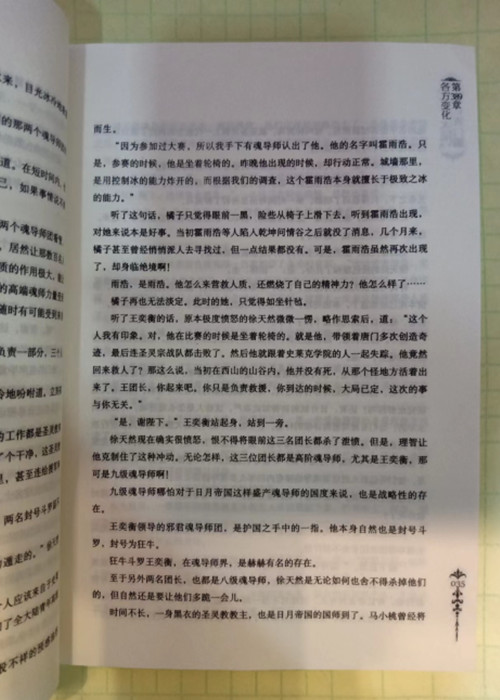 来，目光冰冷
的那两个魂导师
道。在短时间内，
己，如果事情
两个魂导师团
，居然让那教
质的作用极大，
的高端魂师力量
随时有可能受到
负责一部分，三个
冷地吩咐道。
的工作都是圣灵教
了个干净，这圣灵
里，甚至连
两名封号斗罗
的逃走的。”
一个人应该来自于
的了全大陆青年高
股不祥的预感
第389章
各方变化
而生。
“因为参加过大赛，所以我手下有魂导师认出了他。他的名字叫霍雨浩。只
是，参赛的时候，他是坐着轮椅的。昨晚他出现的时候，却行动正常。城墙那里，
是用控制冰的能力炸开的，而根据我们的调查，这个霍雨浩本身就擅长于极致之冰
的能力。”
听了这句话，橘子只觉得眼前一黑，险些从椅子上滑下去。听到霍雨浩出现，
对她来说本是好事。当初霍雨浩等人陷入乾坤问情谷之后就没了消息，几个月来，
橘子甚至曾经悄悄派人去寻找过，但一点结果都没有。可是，霍雨浩虽然再次出现
了，却身临绝境啊！
雨浩，是雨浩。他怎么来营救人质，还燃烧了自己的精神力？他怎么样了……
橘子再也无法淡定，此时的她，只觉得如坐针毡。
听了王奕衡的话，原本极度愤怒的徐天然微微一愣，略作思索后，道：“这个
人我有印象。对，他在比赛的时候是坐着轮椅的。就是他，带领着唐门多次创造奇
迹，最后连圣灵宗战队都击败了。然后他就跟着史莱克学院的人一起失踪。他竟然
回来救人了？那这么说，当初在西山的山谷内，他并没有死，从那个怪地方活着出
来了。王团长，你起来吧。你只是负责救援，你到达的时候，大局已定，这次的事
与你无关。”
“是，谢陛下。”王奕衡站起身，站到一旁。
徐天然现在确实很愤怒，恨不得将眼前这三名团长都杀了泄愤。但是，理智让
他克制住了这种冲动，无论怎样，这三位团长都是高阶魂导师，尤其是王奕衡，那
可是九级魂导师啊！
九级魂导师哪怕对于日月帝国这样盛产魂导师的国度来说，也是战略性的存
在。
王奕衡领导的邪君魂导师团，是护国之手中的一指。他本身自然也是封号斗
罗，封号为狂牛。
狂牛斗罗王奕衡，在魂导师界，是赫赫有名的存在。
至于另外两名团长，也都是八级魂导师，徐天然是无论如何也舍不得杀掉他们
的，但自然还是要让他们多跪一会儿。
时间不长，一身黑衣的圣灵教教主，也是日月帝国的国师到了。马小桃曾经将
035